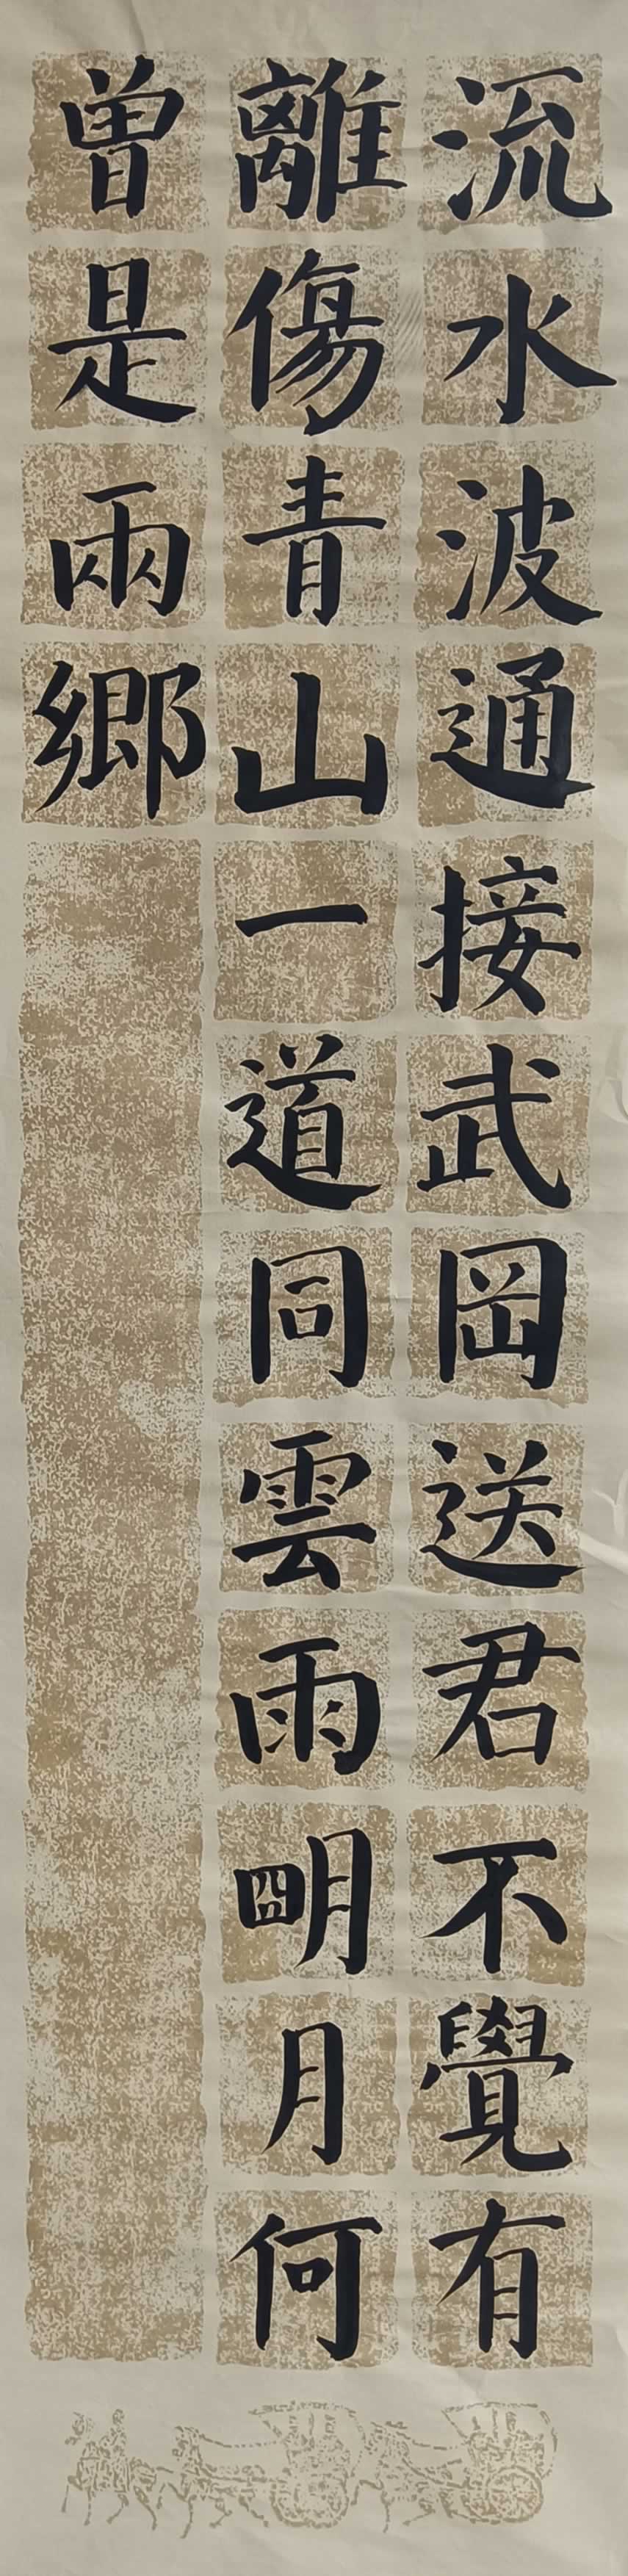 流水波通接武岡送君不覺有
離傷青山一道同雲雨明月何
曽是兩鄉